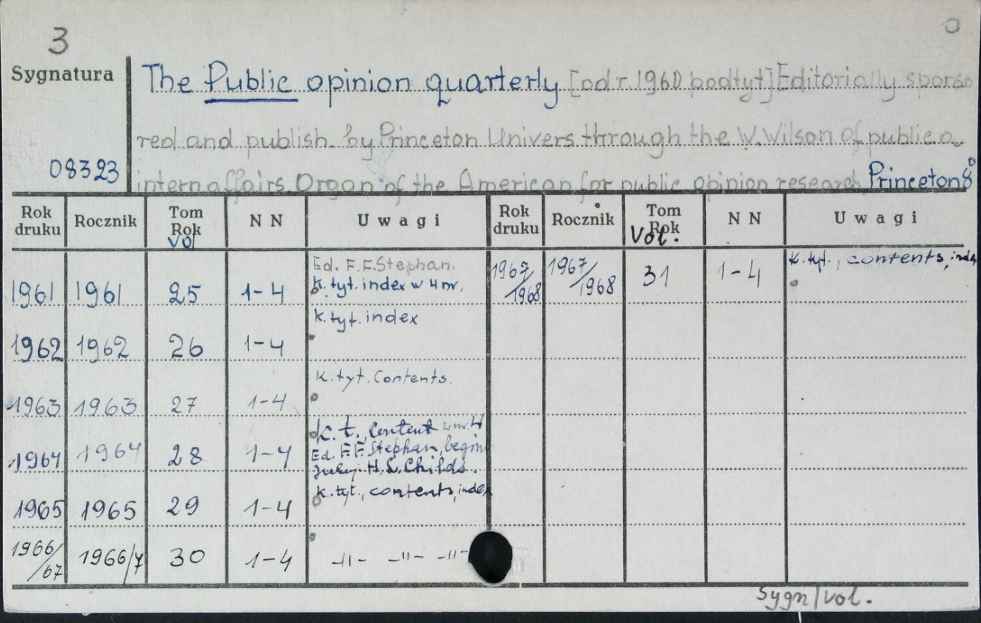 3
Sygnatura
08323
The Public opinion quarterly [od r. 1960 podtyt] Editorially sponso
red and publish. by Princeton Univers through the W. Wilson of public a.
intern affairs. Organ of the American for public opinion research. Princeton 8°
Rok druku Rocznik Tom Rok Vol NN Uwagi Rok druku Rocznik Tom Rok Vol. NN Uwagi
1961 1961 25 1-4 Ed. F.F. Stephan. k. tyt. index w 4 nr. 1967/1968 1967/1968 31 1-4 k. tyt., contents, index
1962 1962 26 1-4 k. tyt. index
1963 1963 27 1-4 k. tyt. Contents.
1964 1964 28 1-4 k. t., Content w nr 4 Ed. F.F. Stephan, begin July H.L. Childs.
1965 1965 29 1-4 k. tyt., contents, index
1966/67 1966/7 30 1-4 -"- -"- -"-
Sygn/vol.